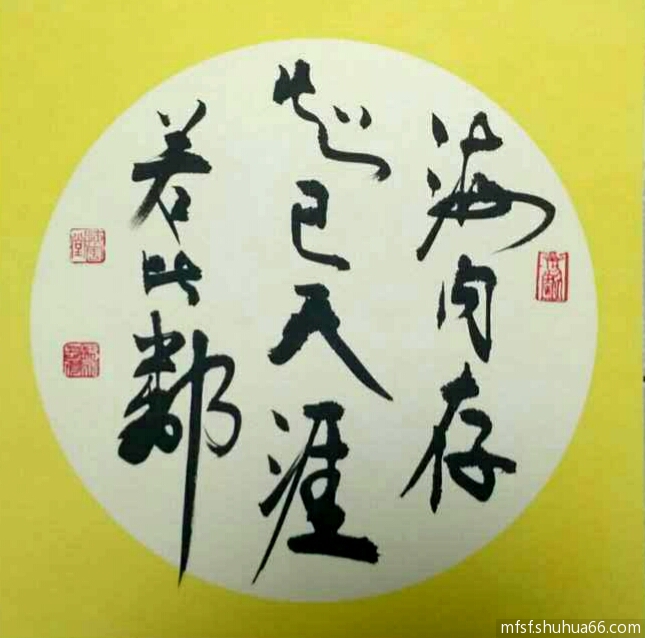 海内存
知己天涯
若比鄰
mfsfshuhua66.com